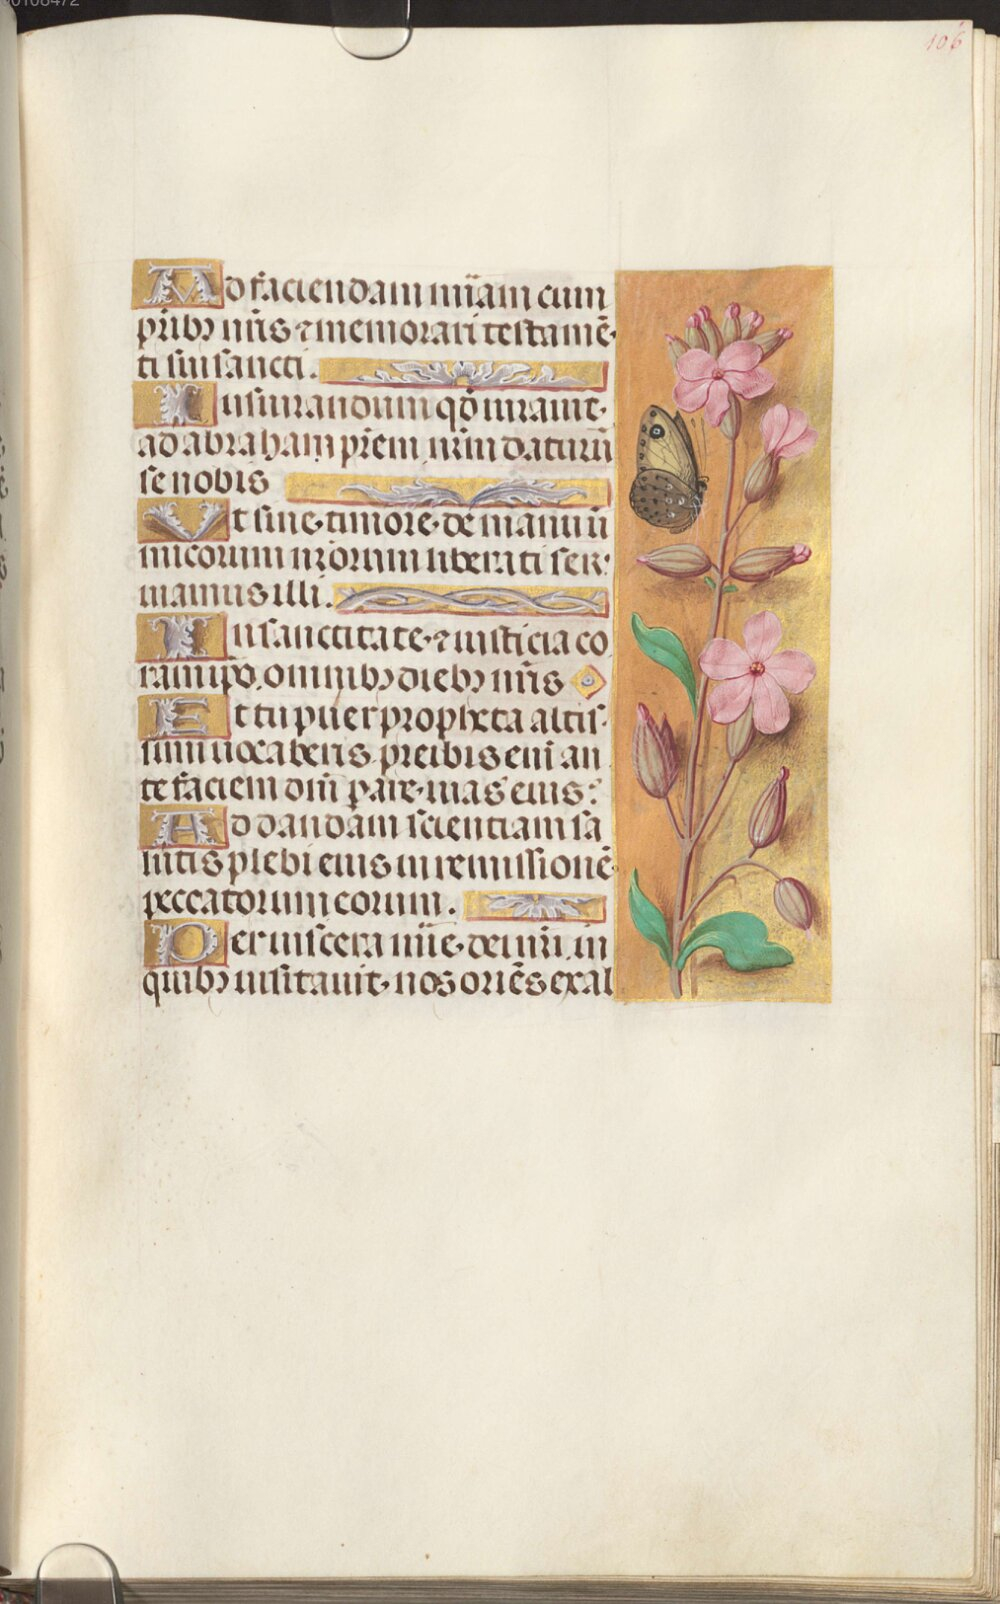 00108472
106
Ad faciendam mīam cum
prībꝫ nr̄is ⁊ memorari testamē
ti sui sancti.
Iusiurandum qď iurauit
ad abraham prēm nr̄m daturū
se nobis
Vt sine timore de manu ī
micorum nr̄orum liberati ser
uiamus illi.
In sanctitate ⁊ iusticia co
ram ip̄o. omnibꝫ diebꝫ nr̄is
Et tu puer propheta altis
simi uocaberis preibis eni an
te faciem dnī parare uias eius:
Ad dandam scientiam sa
lutis plebi eius in remissionē
peccatorum eorum.
Per uiscera mīe dei nr̄i in
quibꝫ uisitauit nos oriēs ex al